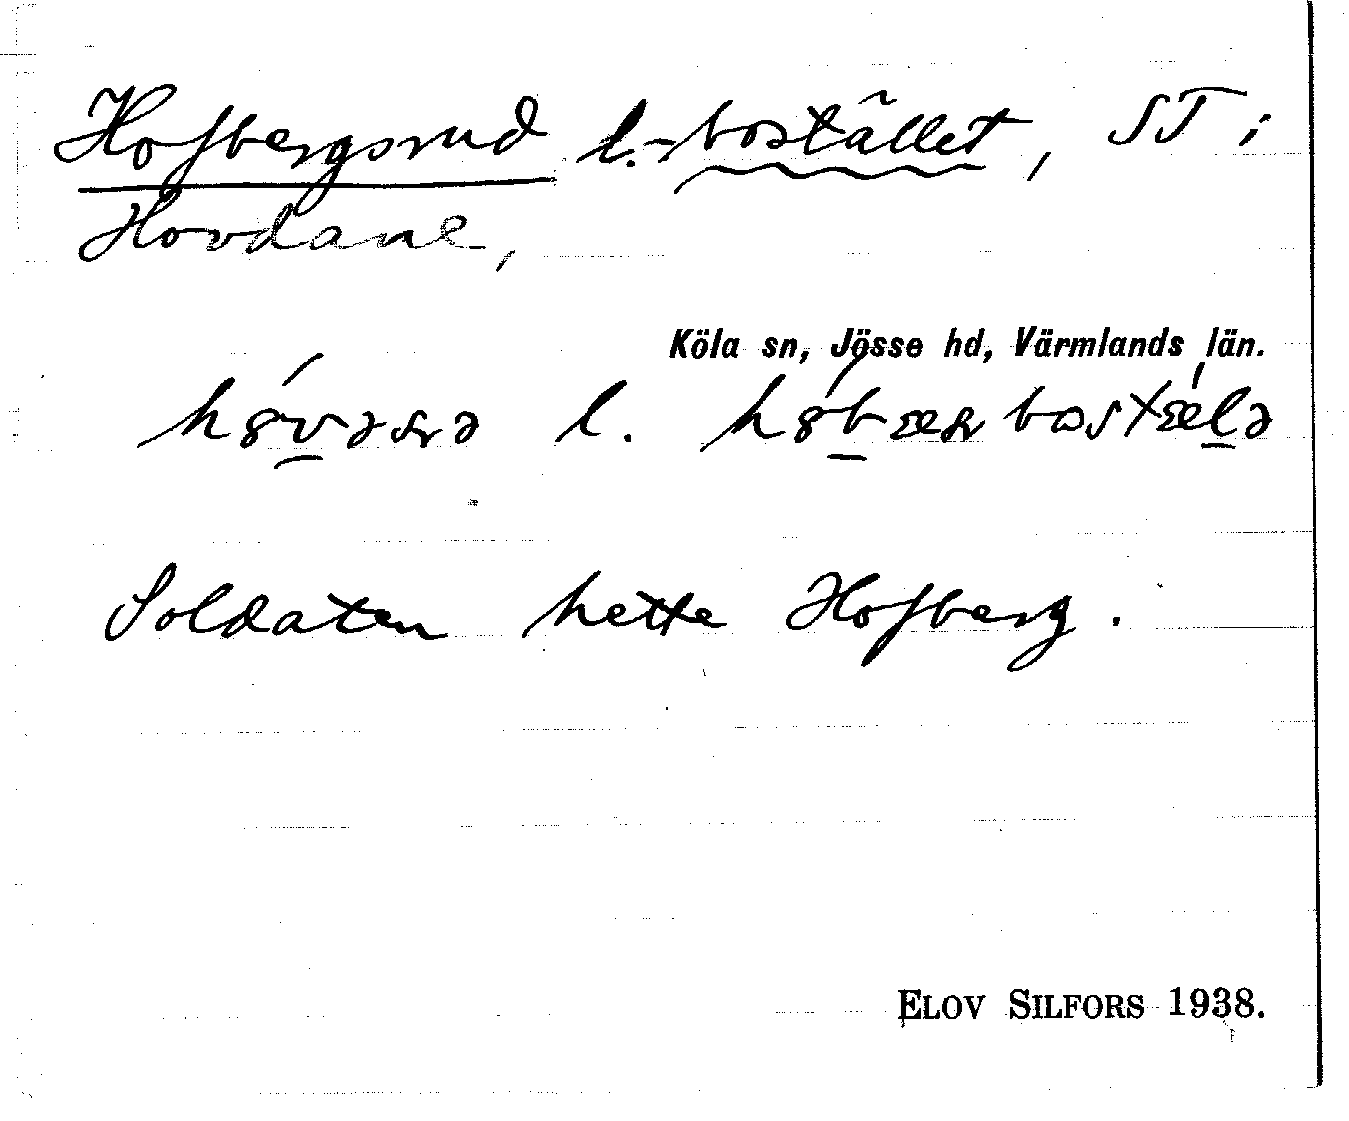 Hofbergsrud l. -bostället, ST i
Hovdane,
Köla sn, Jösse hd, Värmlands län.
l.
Soldaten hette Hofberg.
ELOV SILFORS 1938.